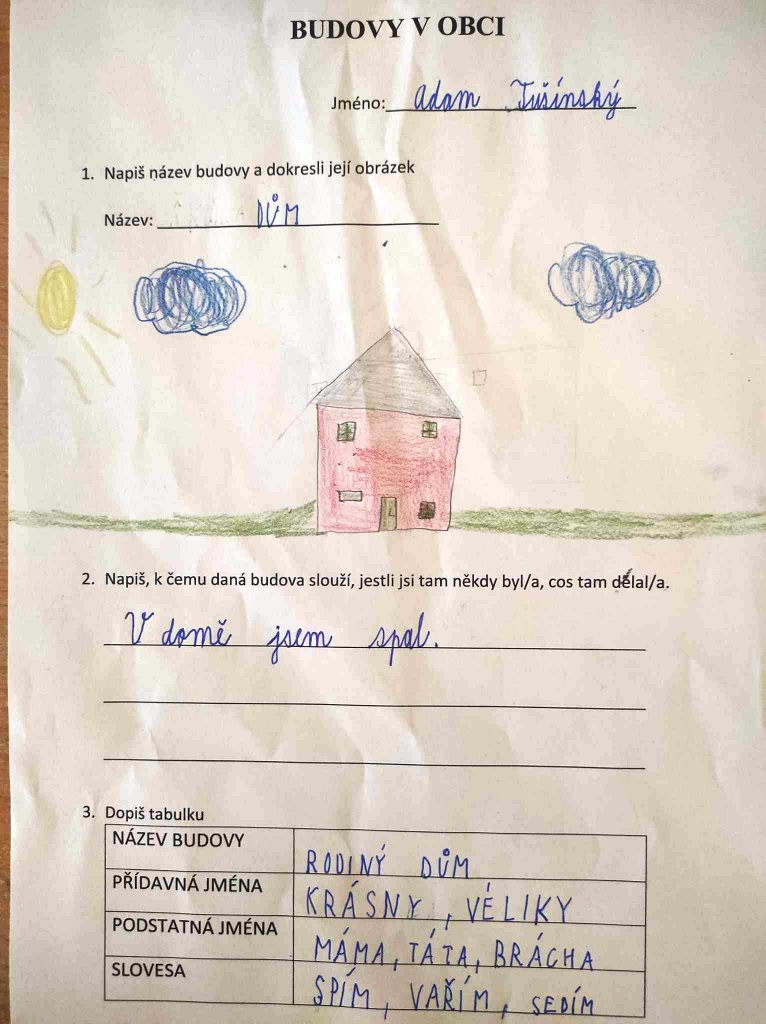 BUDOVY V OBCI
Jméno: Adam Tušínský
1. Napiš název budovy a dokresli její obrázek
Název: DŮM
2. Napiš, k čemu daná budova slouží, jestli jsi tam někdy byl/a, cos tam dělal/a.
V domě jsem spal.
3. Dopiš tabulku
NÁZEV BUDOVY RODINÝ DŮM
PŘÍDAVNÁ JMÉNA KRÁSNY, VÉLIKY
PODSTATNÁ JMÉNA MÁMA, TÁTA, BRÁCHA
SLOVESA SPÍM, VAŘÍM, SEDÍM